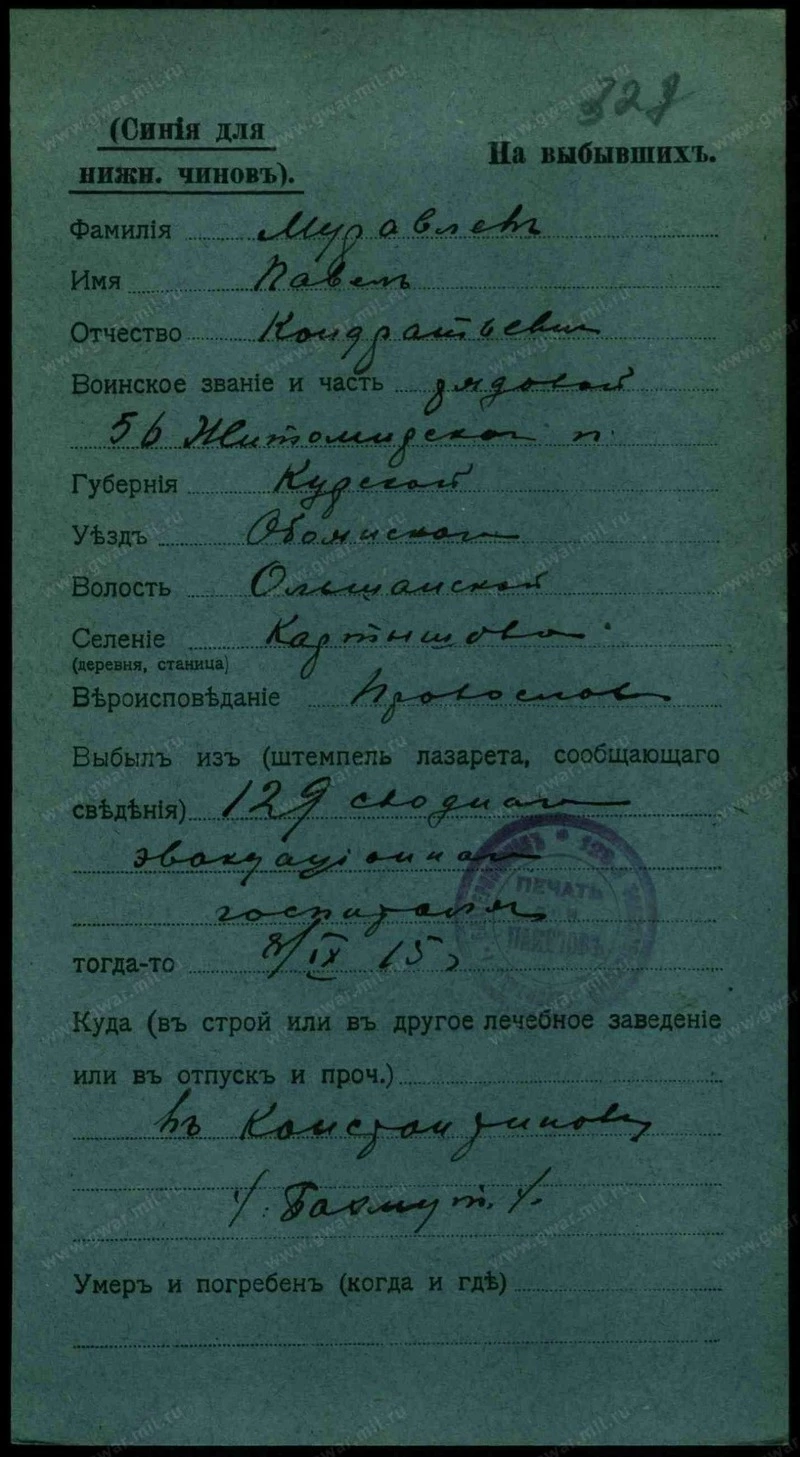 328
(Синія для
нижн. чиновъ).
На выбывшихъ.
Фамилія Муравлевъ
Имя Павелъ
Отчество Кондратьевич
Воинское званіе и часть рядовой
56 Житомирскаго п.
Губернія Курской
Уѣздъ Обоянскаго
Волость Ольшанской
Селеніе Картышова
(деревня, станица)
Вѣроисповѣданіе Православ
Выбылъ изъ (штемпель лазарета, сообщающаго
свѣдѣнія) 129 своднаго
эвакуаціоннаго
госпиталя
ПЕЧАТЬ
тогда-то 8/IX 15
Куда (въ строй или въ другое лечебное заведеніе
или въ отпускъ и проч.)
въ Константинову
/. Бахмут. /.
Умеръ и погребенъ (когда и гдѣ)
www.gwar.mil.ru